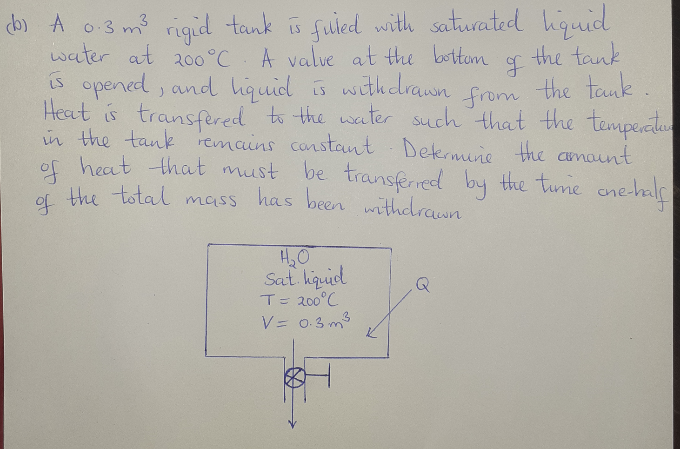 (b) A 0.3 m³ rigid tank is filled with saturated liquid
water at 200°C. A valve at the bottom of the tank
is opened, and liquid is withdrawn from the tank.
Heat is transfered to the water such that the temperature
in the tank remains constant. Determine the amount
of heat that must be transferred by the time one-half
of the total mass has been withdrawn
H₂O
Sat. liquid
T = 200°C
V = 0.3 m³
Q